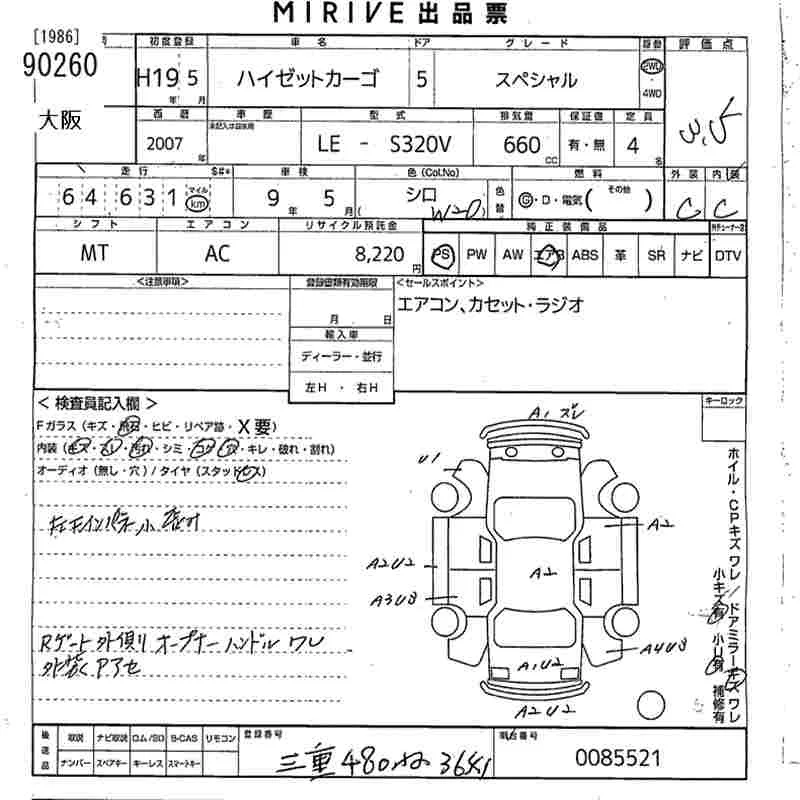 MIRIVE 出品票
[1986]
90260
大阪
初度登録 車名 ドア グレード 駆動 評価点
H19 5 ハイゼットカーゴ 5 スペシャル 2WD・4WD
年 月
3.5
西暦 車歴 型式 排気量 保証書 定員
2007 年 LE - S320V 660 CC 有・無 4 名
走行 S#* 車検 色(Col.No) 燃料 外装 内装
64631 マイル km 9 年 5 月 シロ W20 色替 G・D・電気( その他 ) C C
シフト エアコン リサイクル預託金 純正装備品
MT AC 8,220 円 PS PW AW エアB ABS 革 SR ナビ DTV
<注意事項> 登録書類有効期限 <セールスポイント>
月 日 エアコン、カセット・ラジオ
輸入車
ディーラー・並行
左H ・ 右H
< 検査員記入欄 > キーロック
Fガラス(キズ・飛石・ヒビ・リペア跡・X要)
内装(キズ・スレ・汚れ・シミ・コゲ・穴・キレ・破れ・割れ)
オーディオ(無し・穴)/タイヤ(スタッドレス)
Rゲート外側リオープナーハンドルワレ
外装Pアセ
A1ズレ
U1
A2
A2U2
A2
A3U3
A4U3
A1U2
A2U2
ホイル・CPキズワレ/ドアミラーキズワレ
小キズ有 小U有 補修有
後送品 取説 ナビ取説 ロム/SD B-CAS リモコン 登録番号
ナンバー スペアキー キーレス スマートキー
三重 480 ね 3641
車台番号
0085521